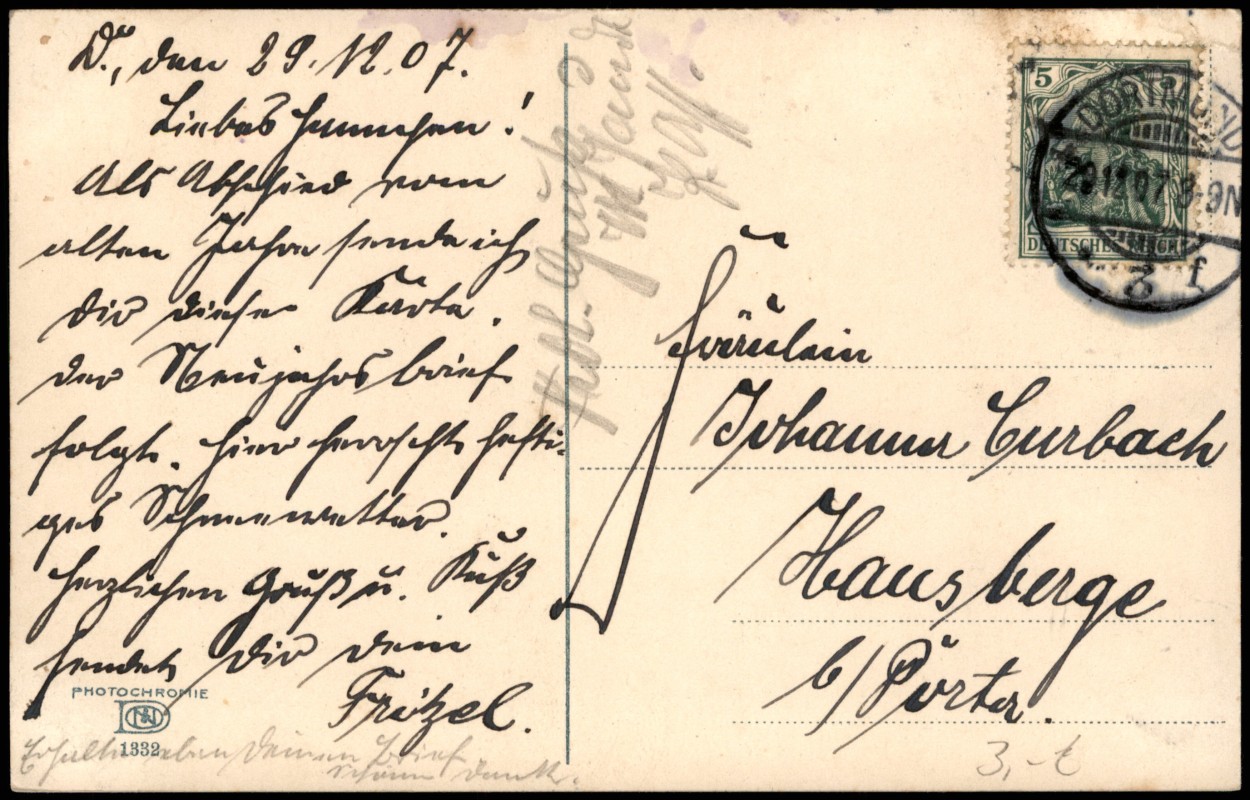 D., den 29.12.07.
Liebes Hannchen!
Als Abschied vom
alten Jahre sende ich
dir diese Karte.
der Neujahrsbrief
folgt. hier herrscht hefti-
ges Schneewetter.
herzlichen Gruß u. Kuß
sendet dir dein
Fritzel.
PHOTOCHROMIE
1332
Erhalte eben deinen Brief
schönen Dank.
5 5
DEUTSCHES REICH
DORTMUND
29.12.07 8-9N
3 f
Fräulein
Johanna Curbach
Hausberge
b/ Porta.
3,-